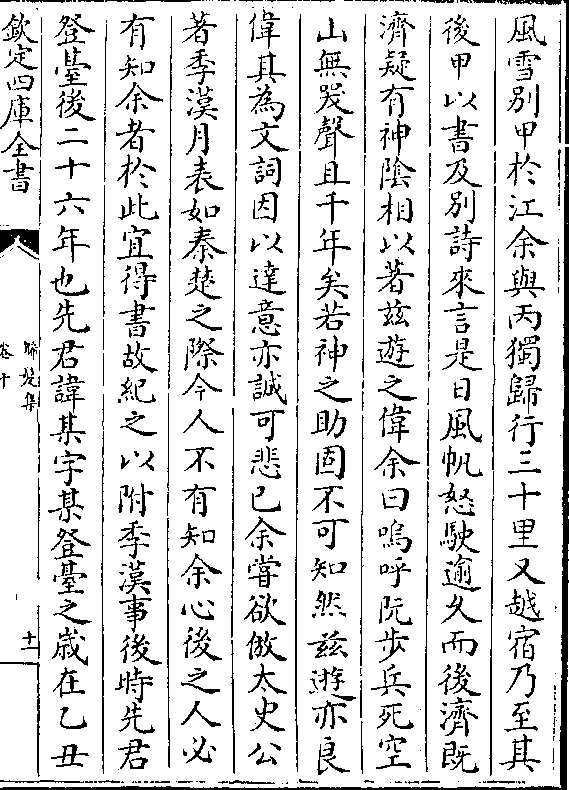 風雪別甲於江余與丙獨歸行三十里又越宿乃至其
後甲以書及別詩來言是日風帆怒駛逾久而後濟既
濟疑有神陰相以著兹遊之偉余曰嗚呼阮步兵死空
山無哭聲且千年矣若神之助固不可知然兹遊亦良
偉其為文詞因以達意亦誠可悲已余嘗欲倣太史公
著季漢月表如秦楚之際今人不有知余心後之人必
有知余者於此宜得書故紀之以附季漢事後時先君
登臺後二十六年也先君諱某字某登臺之歲在乙丑
欽定四庫全書
晞髮集
卷十
十一